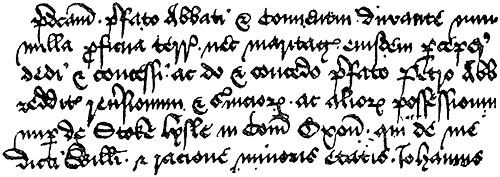 p̄dcām̄ p̄fato Abbati & Conventui durante
nulla p̄ficua terr̄ nec maritag̃ eiusdem p̄cepẽ
dedi & concessi ac do & concedo p̄fato Petro Abb
reddit̃ revsionum & s̃vicioꝝ ac alioꝝ possessionū
nup̄ de Stoke lysle in Com̄ Oxon̄ qui de me
dicti Willi & racione minoris etatis Iohannis